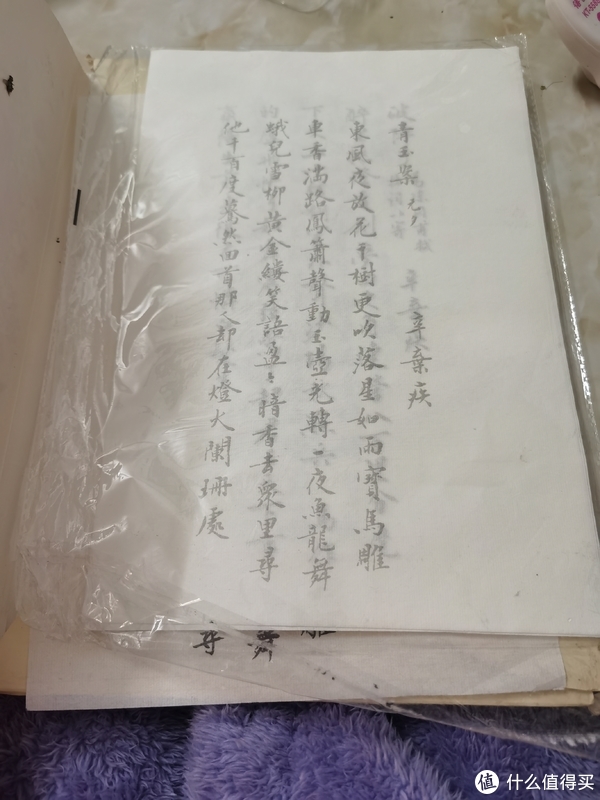 青玉案 元夕 辛棄疾
東風夜放花千樹更吹落星如雨寶馬雕
車香滿路鳳簫聲動玉壺光轉一夜魚龍舞
蛾兒雪柳黃金縷笑語盈〻暗香去眾里尋
他千百度驀然回首那人却在燈火闌珊處
舞
尋
值 什么值得买